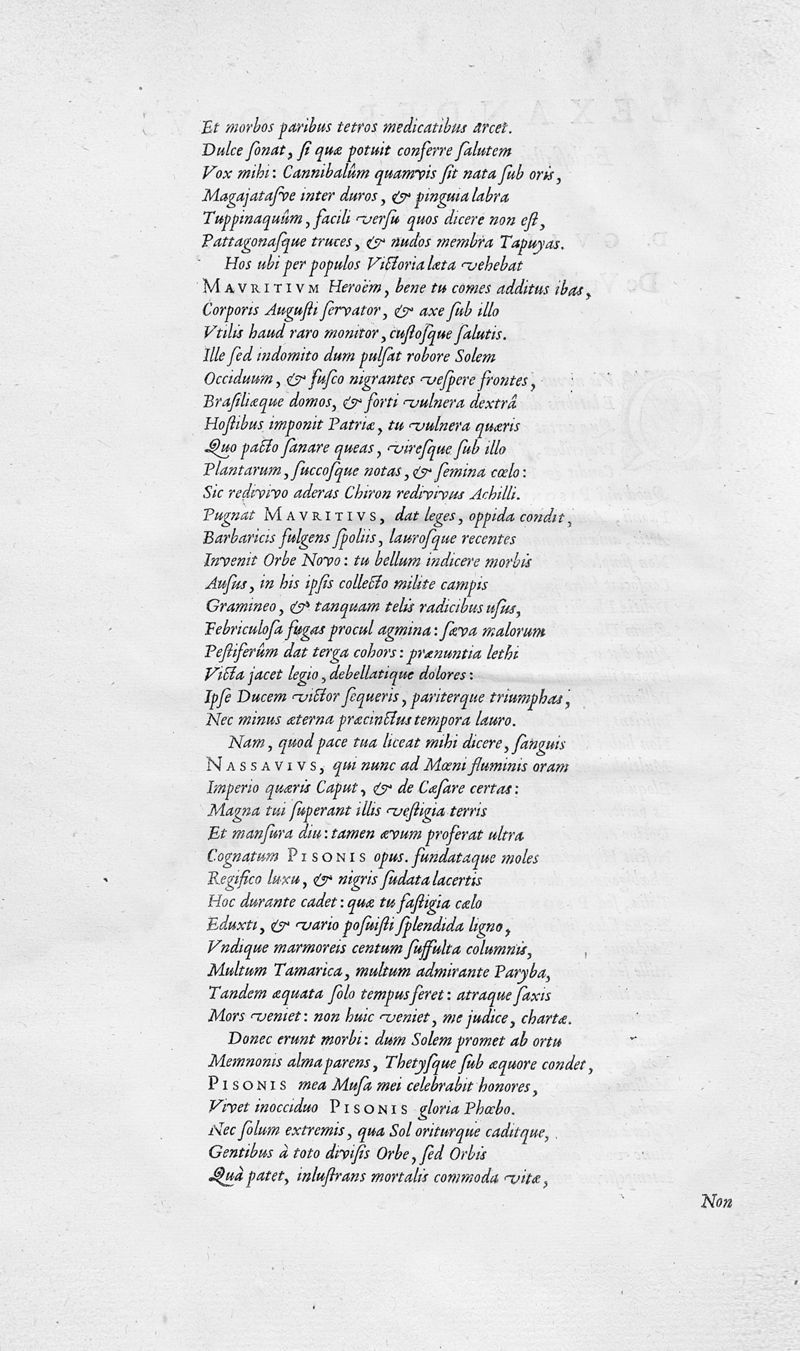 Et morbos paribus tetros medicatibus arcet.
Dulce ſonat, ſi quæ potuit conferre ſalutem
Vox mihi: Cannibalûm quamvis ſit nata ſub oris,
Magajataſve inter duros, & pinguia labra
Tuppinaquûm, facili verſu quos dicere non eſt,
Pattagonaſque truces, & nudos membra Tapuyas.
Hos ubi per populos Victoria læta vehebat
MAVRITIVM Heroëm, bene tu comes additus ibas,
Corporis Auguſti ſervator, & axe ſub illo
Vtilis haud raro monitor, cuſtoſque ſalutis.
Ille ſed indomito dum pulſat robore Solem
Occiduum, & fuſco nigrantes veſpere frontes,
Braſiliæque domos, & forti vulnera dextrâ
Hoſtibus imponit Patriæ, tu vulnera quæris
Quo pacto ſanare queas, vireſque ſub illo
Plantarum, ſuccoſque notas, & ſemina cœlo:
Sic redivivo aderas Chiron redivivus Achilli.
Pugnat MAVRITIVS, dat leges, oppida condit,
Barbaricis fulgens ſpoliis, lauroſque recentes
Invenit Orbe Novo: tu bellum indicere morbis
Auſus, in his ipſis collecto milite campis
Gramineo, & tanquam telis radicibus uſus,
Febriculoſa fugas procul agmina: ſæva malorum
Peſtiferûm dat terga cohors: prænuntia lethi
Victa jacet legio, debellatique dolores:
Ipſe Ducem victor ſequeris, pariterque triumphas,
Nec minus æterna præcinctus tempora lauro.
Nam, quod pace tua liceat mihi dicere, ſanguis
NASSAVIVS, qui nunc ad Mœni fluminis oram
Imperio quæris Caput, & de Cæſare certas:
Magna tui ſuperant illis veſtigia terris
Et manſura diu: tamen ævum proferat ultra
Cognatum PISONIS opus. fundataque moles
Regifico luxu, & nigris ſudata lacertis
Hoc durante cadet: quæ tu faſtigia cælo
Eduxti, & vario poſuiſti ſplendida ligno,
Vndique marmoreis centum ſuffulta columnis,
Multum Tamarica, multum admirante Paryba,
Tandem æquata ſolo tempus feret: atraque ſaxis
Mors veniet: non huic veniet, me judice, chartæ.
Donec erunt morbi: dum Solem promet ab ortu
Memnonis alma parens, Thetyſque ſub æquore condet,
PISONIS mea Muſa mei celebrabit honores,
Vivet inocciduo PISONIS gloria Phœbo.
Nec ſolum extremis, qua Sol oriturque caditque,
Gentibus à toto diviſis Orbe, ſed Orbis
Quà patet, inluſtrans mortalis commoda vitæ,
Non